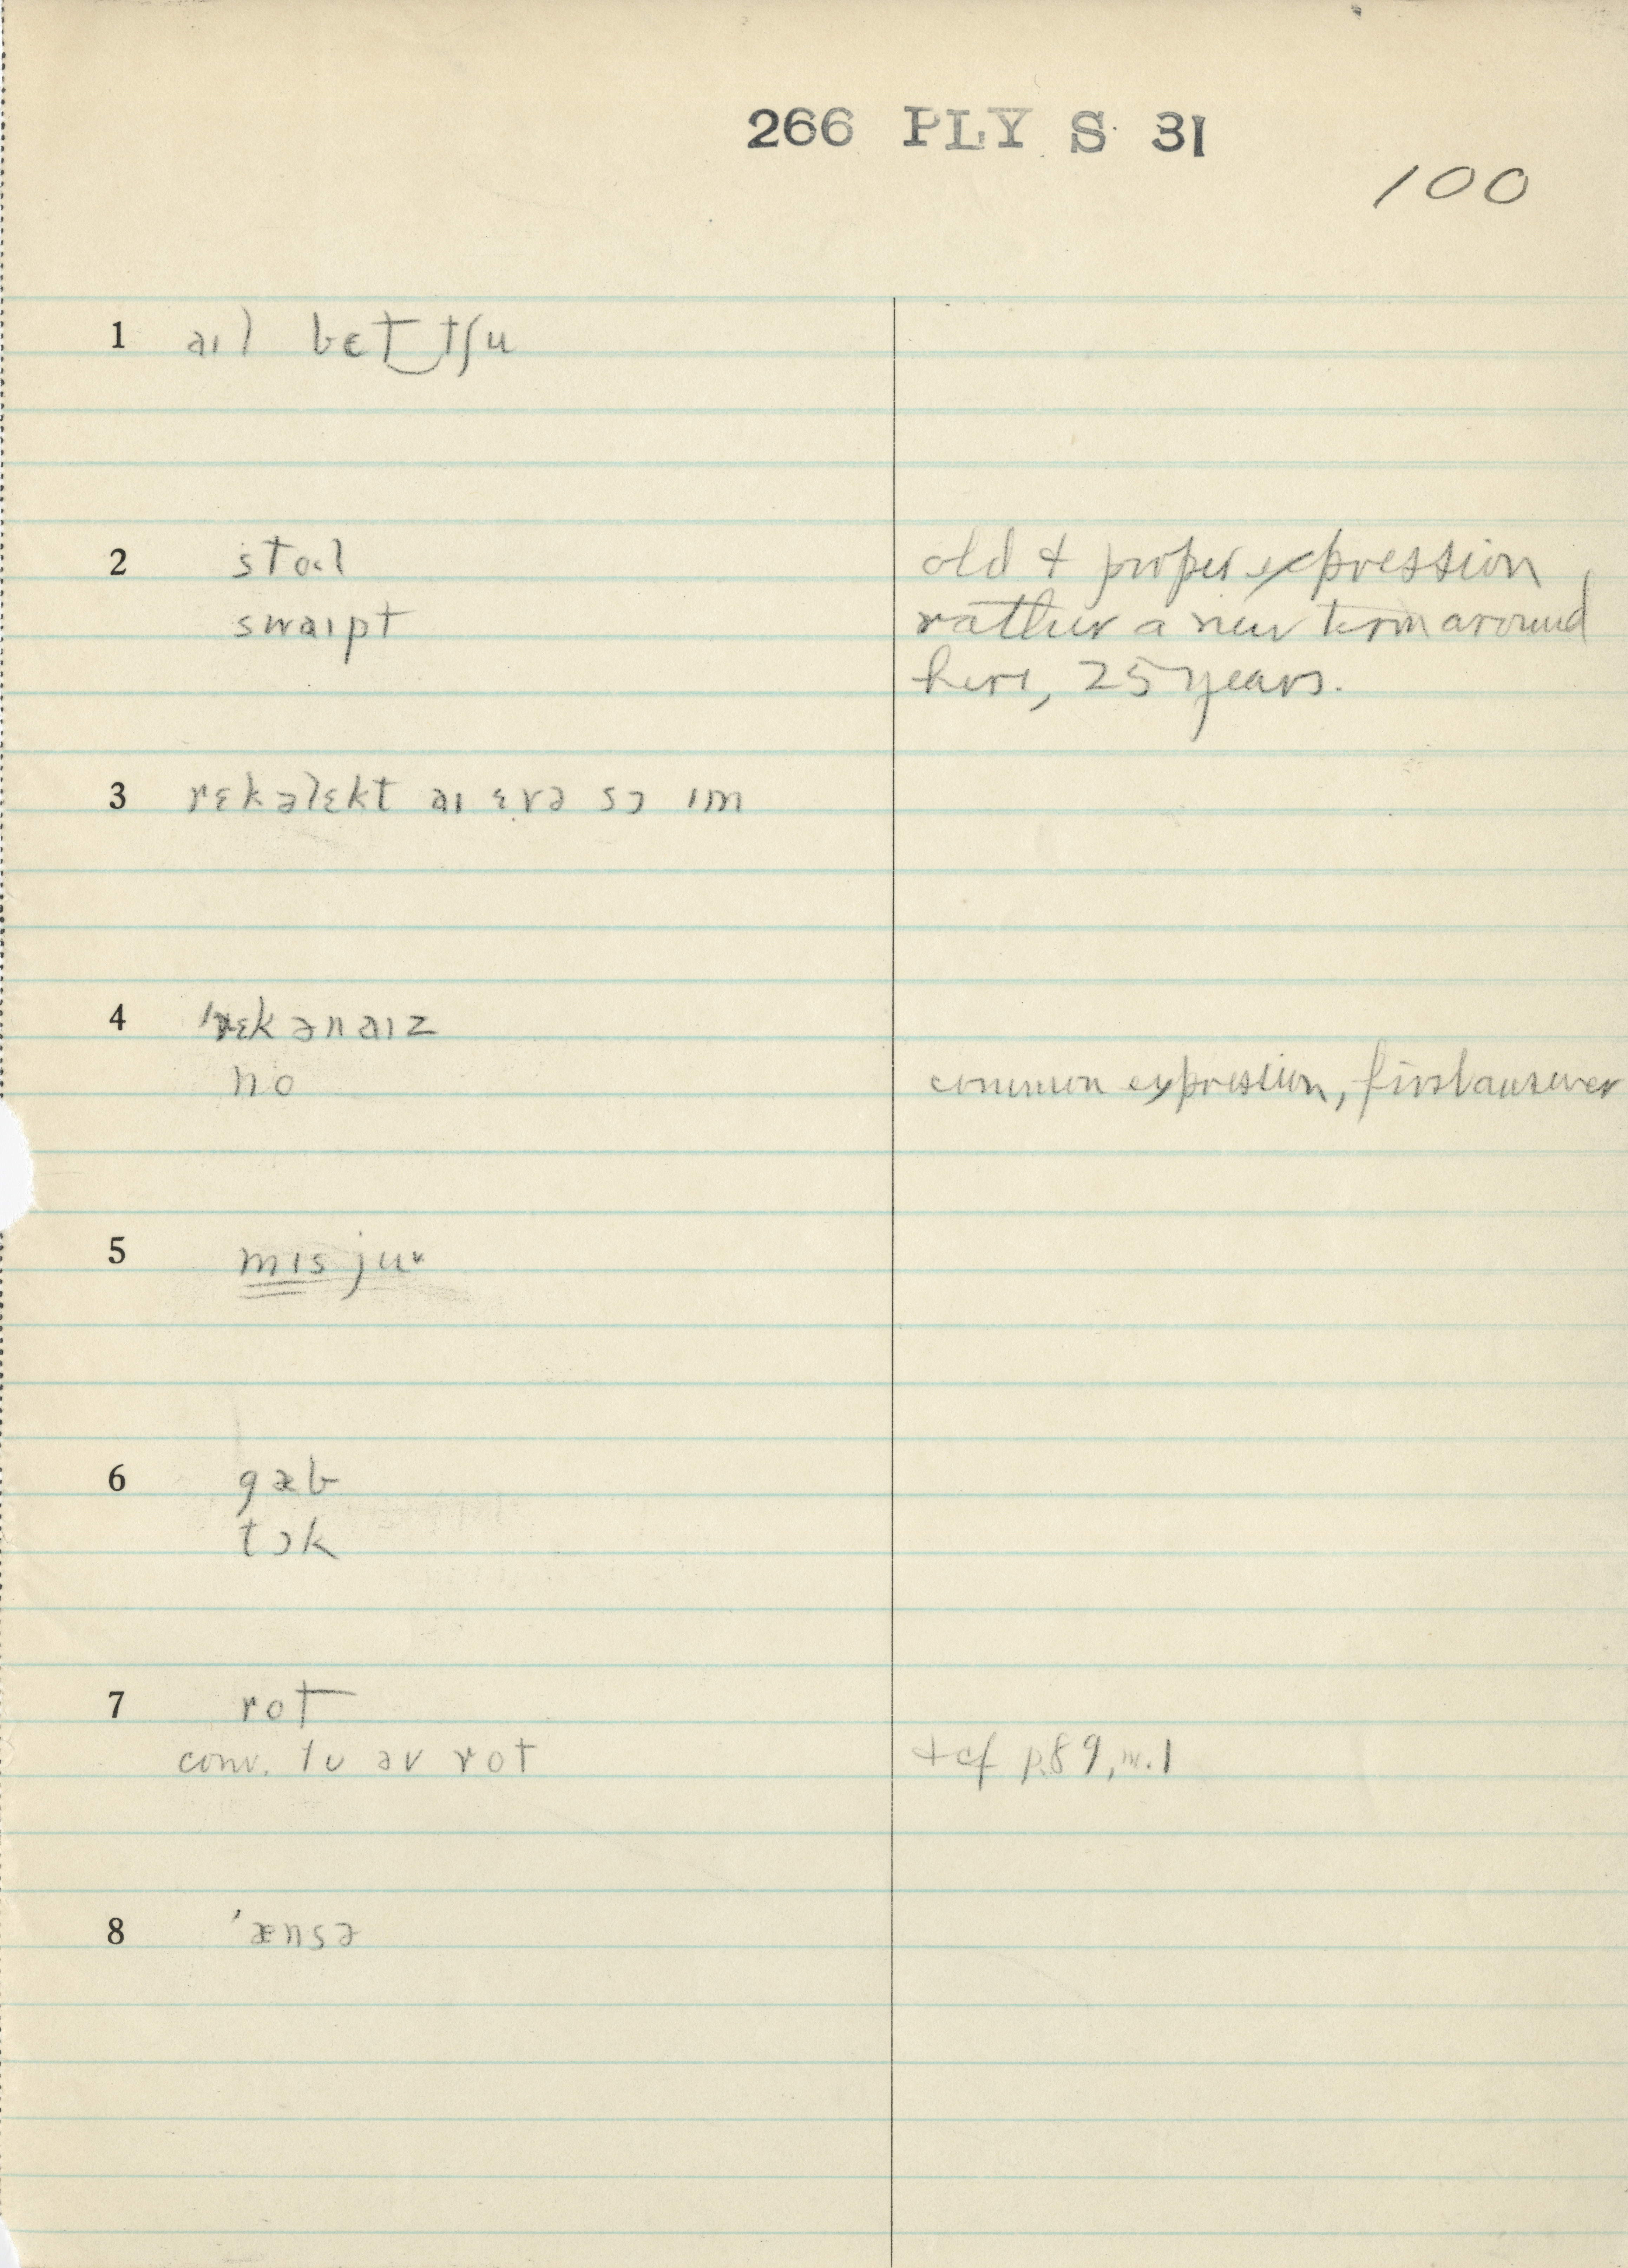 266 PLY S 31
100
1 aıl bet‿tʃu
2 stoəl old + proper expression,
swaıpt rather a new term around
here, 25 years.
3 rɛkəlɛkt aı ɛvə sɔ ım
4 'rɛkənaız
no common expression, first answer
5 mıs juᵛ
6 gæb
tɔk
7 rot
conv. tu əv rot + cf p.89, n.1
8 'ænsə